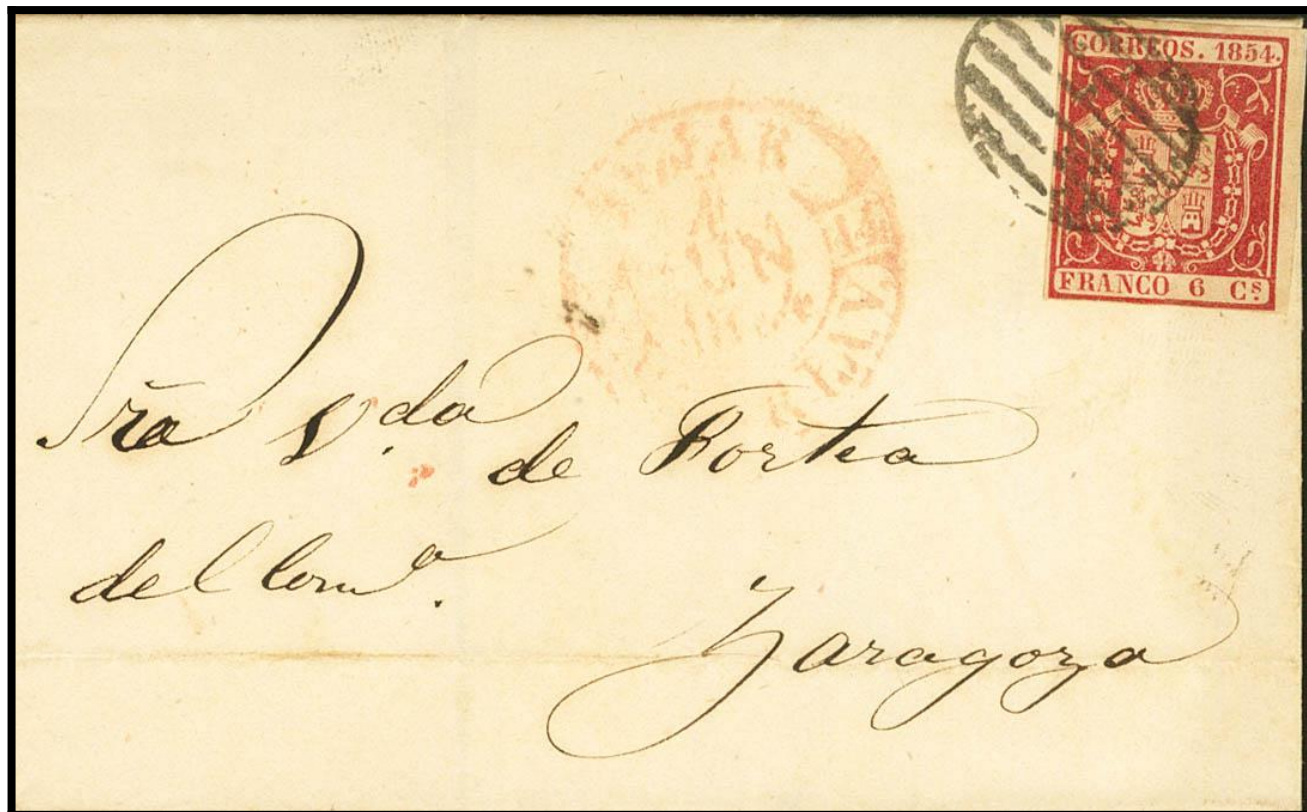 CORREOS. 1854.
FRANCO 6 Cs
Sra V.da de Fortea
del Com.o
Zaragoza